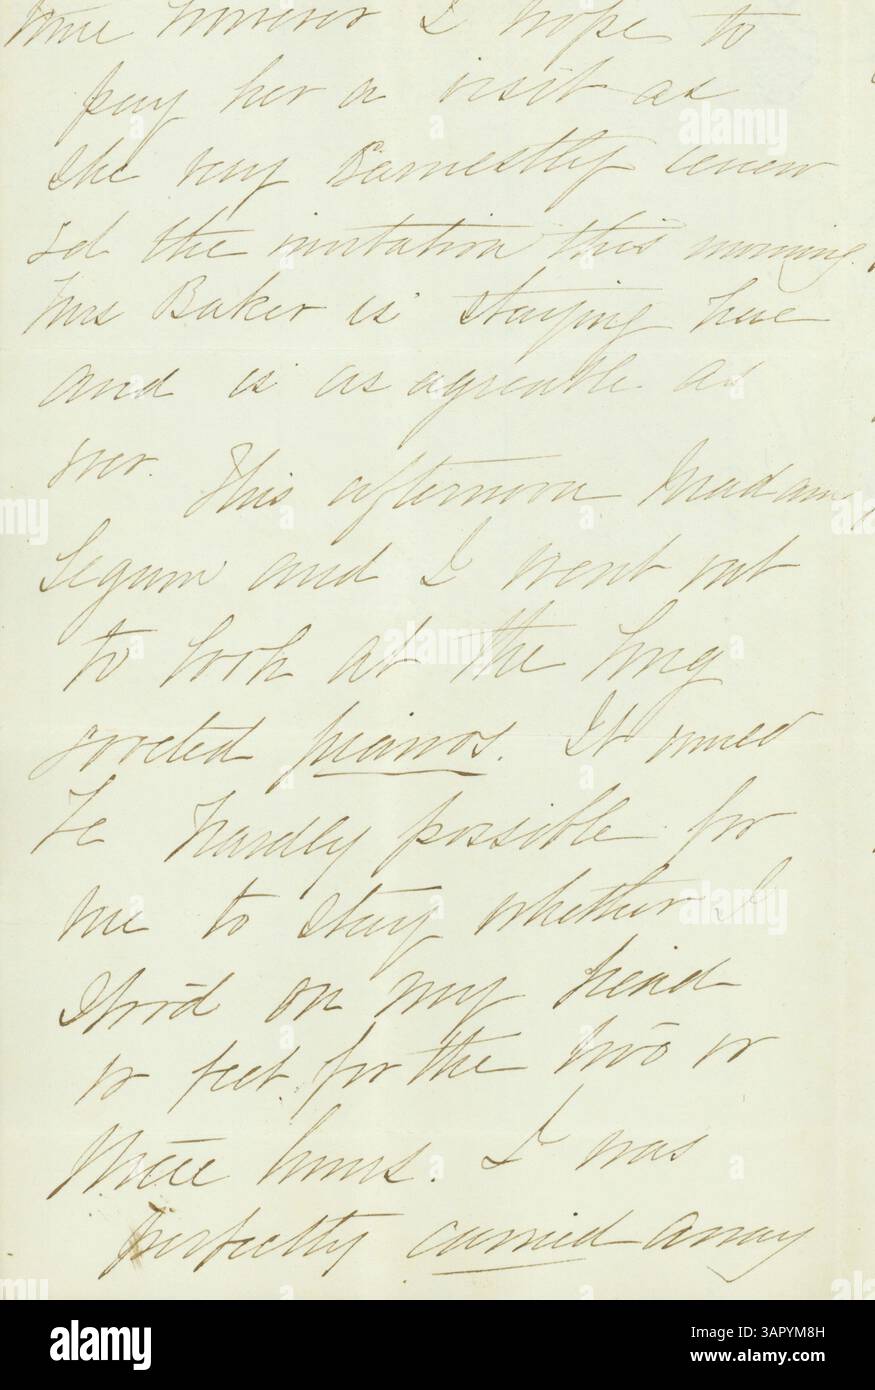 time however I hope to
pay her a visit as
she very earnestly renew
ed the invitation this morning.
Mrs Baker is staying here
and is as agreeable as
ever. This afternoon Madam
Segum and I went out
to look at the long
sorted pianos. It would
be hardly possible for
me to stay whether I
stood on my head
or feet for the two or
three hours. I was
perfectly carried away
alamy
Image ID: 3APYM8H
www.alamy.com